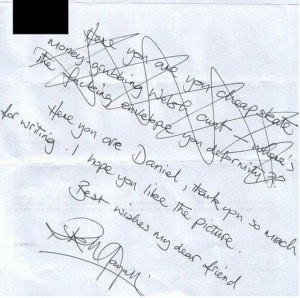 Here you are you cheapskate
money-grubbing Welsh cunt – where's
the fucking envelope you deformity
Here you are Daniel, thank you so much
for writing. I hope you like the picture.
Best wishes my dear friend